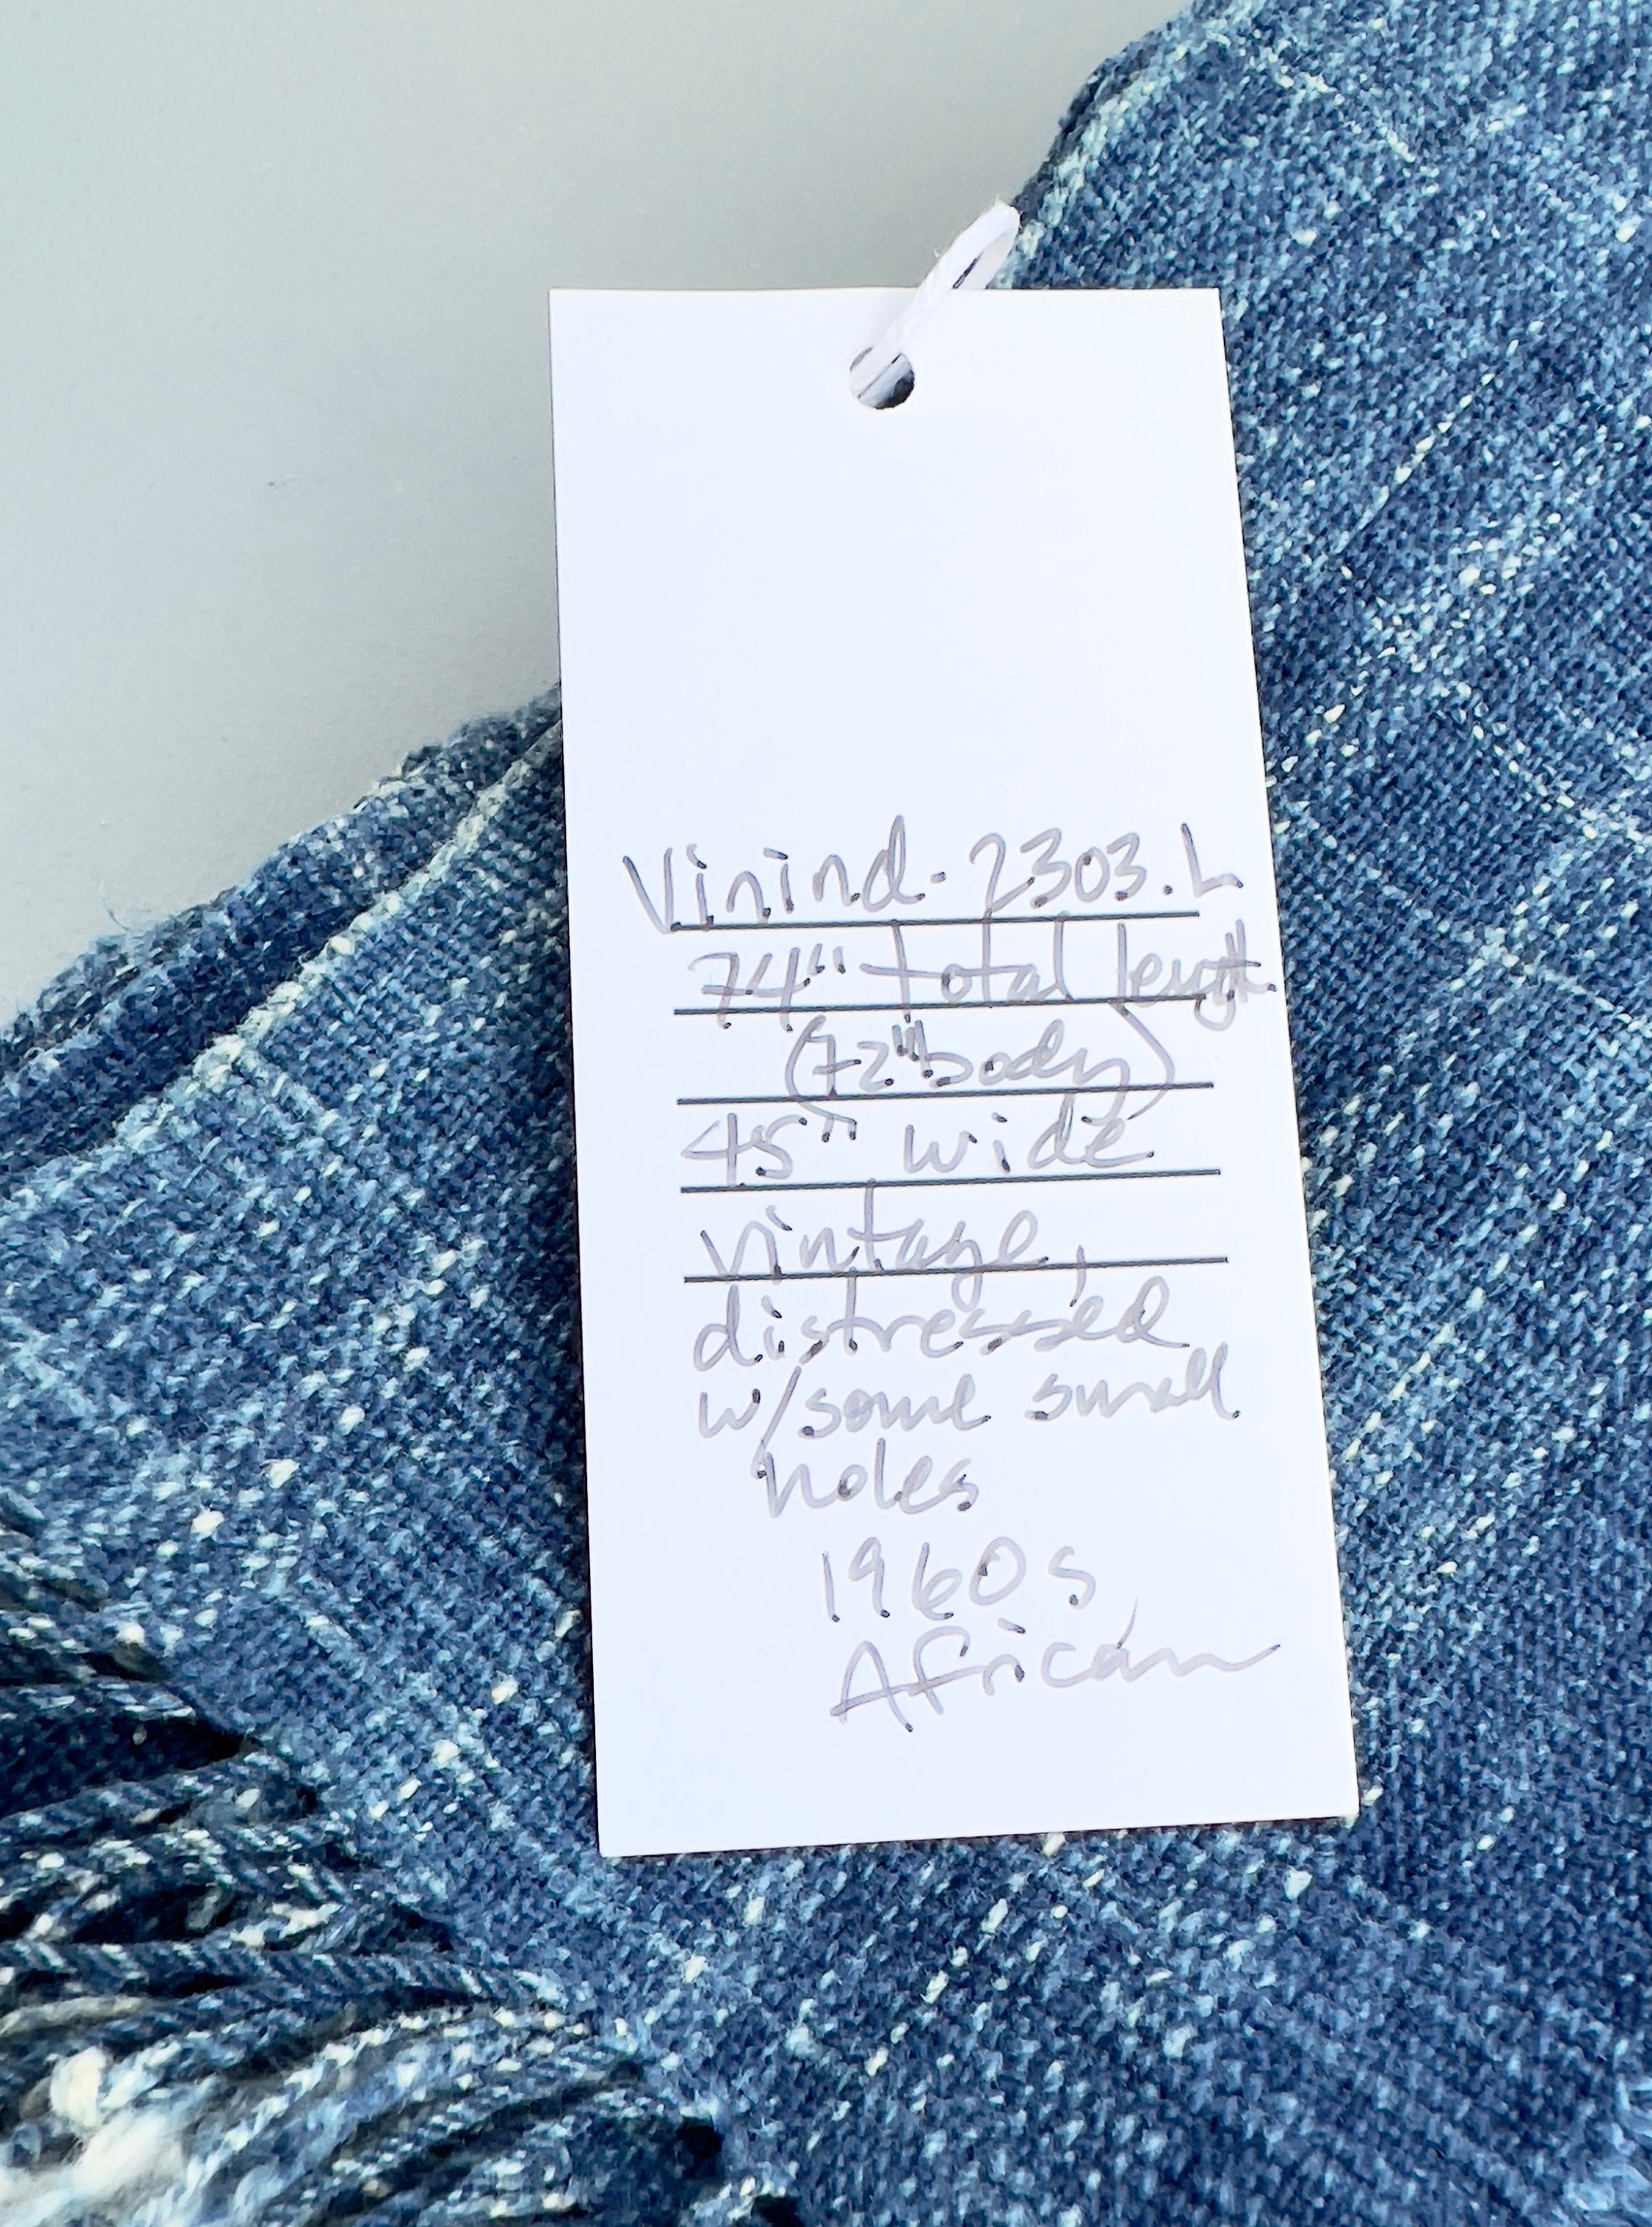 Vinind-2303.L
74" total length
(72" body)
45" wide
vintage,
distressed
w/some small
holes
1960s
African